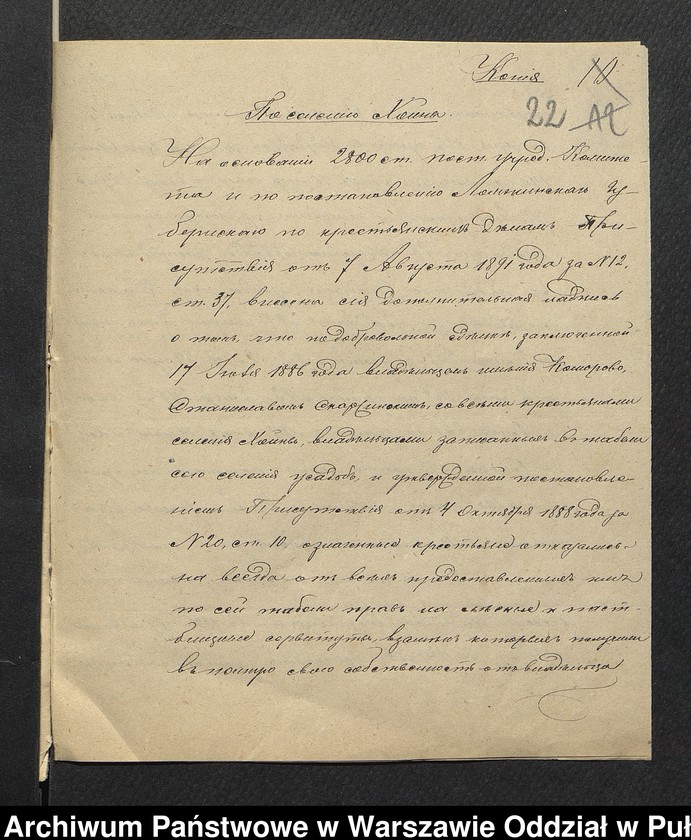 Копія
10
22 12
По селенію Хойны.
На основаніи 2800 ст. пост. учред. Комите-
та и по постановленію Ломжинскаго Гу-
бернскаго по крестьянскимъ дѣламъ При-
сутствія отъ 7 Августа 1891 года за N 12,
ст. 37, внесена сія дополнительная надпись
о томъ, что по добровольной сдѣлкѣ, заключенной
17 Іюля 1886 года владѣльцемъ имѣнія Коморово,
Станиславомъ Скаржинскимъ, со всѣми крестьянами
селенія Хойны, владѣльцами записанныхъ въ табель
сего селенія усадьбъ, и утвержденной постановле-
ніемъ Присутствія отъ 4 Октября 1888 года за
N 20, ст. 10, означенные крестьяне отказались
на всегда отъ всѣхъ предоставленныхъ имъ
по сей табели правъ на лѣсные и паст-
бищные сервитуты, взамѣнъ которыхъ получили
въ полную свою собственность отъ владѣльца
Archiwum Państwowe w Warszawie Oddział w Puł